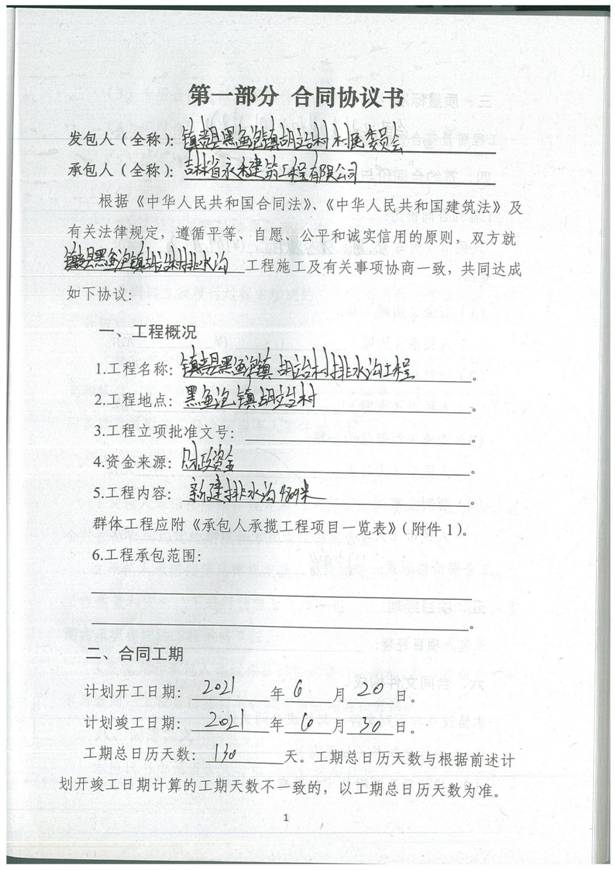 第一部分 合同协议书
发包人（全称）：镇赉县黑鱼泡镇胡台村村民委员会
承包人（全称）：吉林省永木建筑工程有限公司
根据《中华人民共和国合同法》、《中华人民共和国建筑法》及
有关法律规定，遵循平等、自愿、公平和诚实信用的原则，双方就
镇赉县黑鱼泡镇胡台村排水沟 工程施工及有关事项协商一致，共同达成
如下协议：
一、工程概况
1.工程名称：镇赉县黑鱼泡镇胡台村排水沟工程。
2.工程地点：黑鱼泡镇胡台村。
3.工程立项批准文号：。
4.资金来源：财政资金。
5.工程内容：新建排水沟 米。
群体工程应附《承包人承揽工程项目一览表》（附件1）。
6.工程承包范围：
二、合同工期
计划开工日期：2021年6月20日。
计划竣工日期：2021年6月30日。
工期总日历天数：130天。工期总日历天数与根据前述计
划开竣工日期计算的工期天数不一致的，以工期总日历天数为准。
1